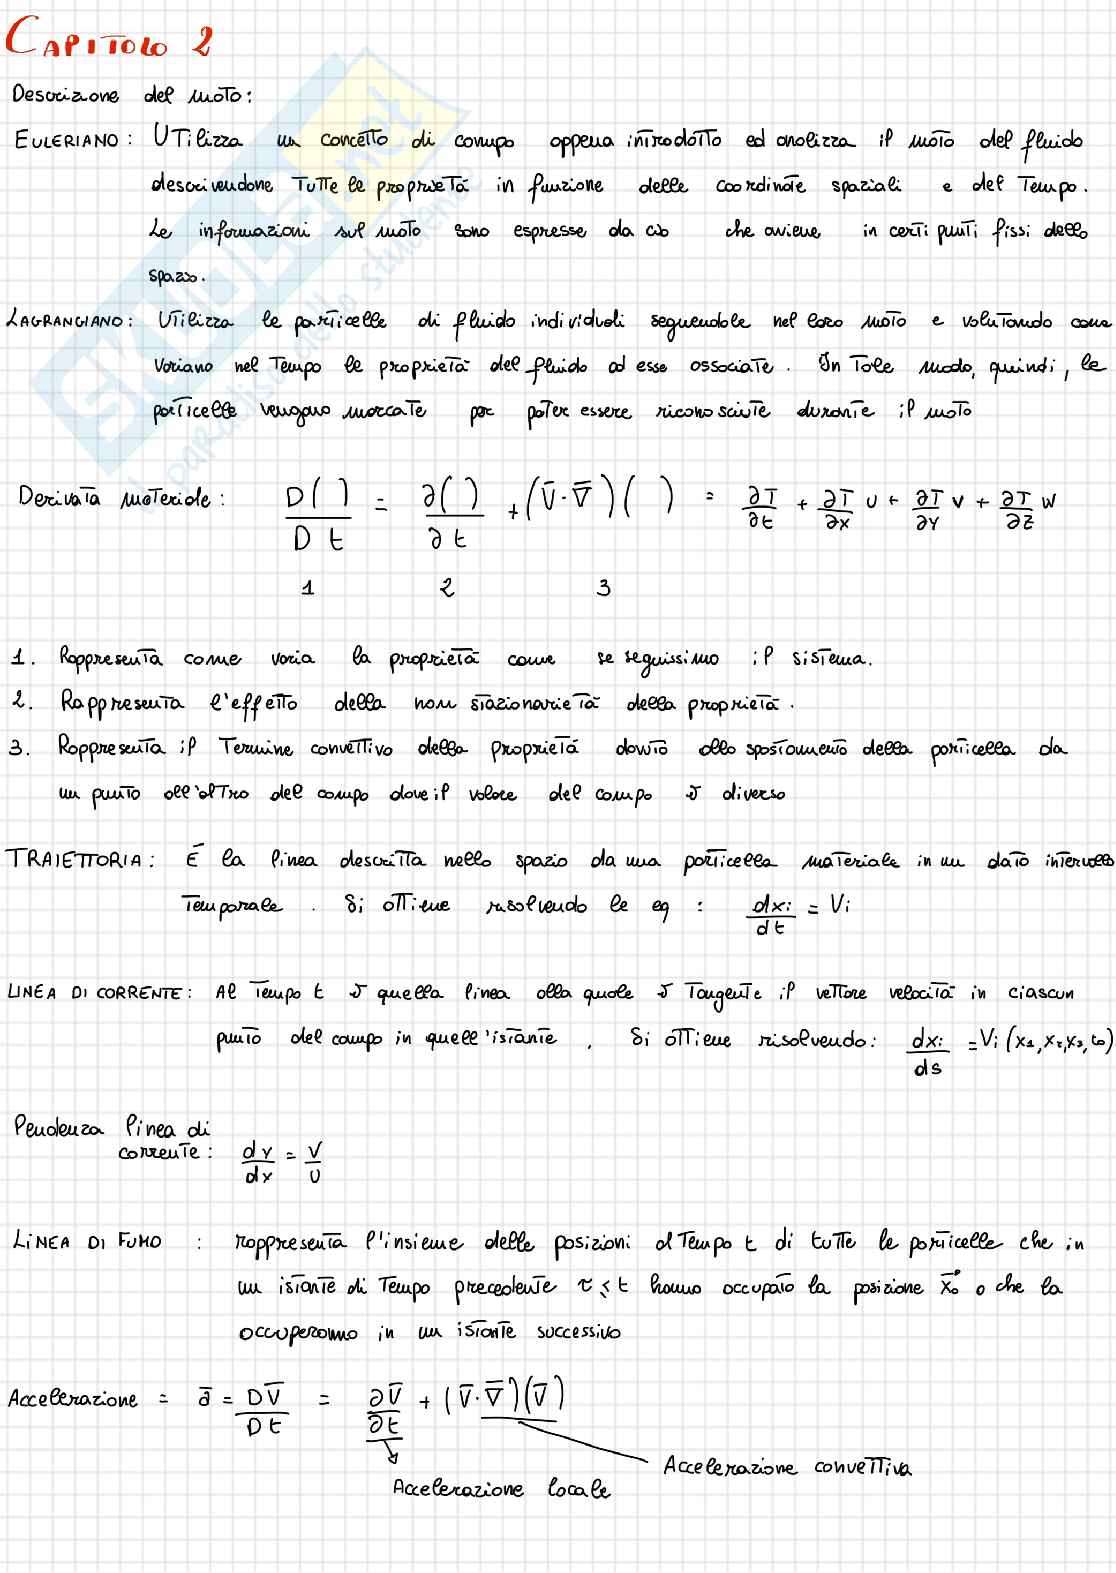 CAPITOLO 2
Descrizione del moto:
EULERIANO: Utilizza un concetto di campo appena introdotto ed analizza il moto del fluido
descrivendone tutte le proprietà in funzione delle coordinate spaziali e del tempo.
Le informazioni sul moto sono espresse da ciò che aviene in certi punti fissi dello
spazio.
LAGRANGIANO: Utilizza le particelle di fluido individuali seguendole nel loro moto e valutando come
variano nel tempo le proprietà del fluido ad esse associate. In tale modo, quindi, le
particelle vengono marcate per poter essere riconosciute durante il moto
Derivata materiale: D( )/Dt = ∂( )/∂t + (V̄·∇̄)( ) = ∂T/∂t + ∂T/∂x U + ∂T/∂y V + ∂T/∂z W
1 2 3
1. Rappresenta come varia la proprietà come se seguissimo il sistema.
2. Rappresenta l'effetto della non stazionarietà della proprietà.
3. Rappresenta il termine convettivo della proprietà dovuto allo spostamento della particella da
un punto all'altro del campo dove il valore del campo è diverso
TRAIETTORIA: É la linea descritta nello spazio da una particella materiale in un dato intervallo
temporale. Si ottiene risolvendo le eq: dxi/dt = Vi
LINEA DI CORRENTE: Al tempo t è quella linea alla quale è tangente il vettore velocità in ciascun
punto del campo in quell'istante. Si ottiene risolvendo: dxi/ds = Vi (x1, x2, x3, t0)
Pendenza linea di
corrente: dy/dx = V/U
LINEA DI FUMO: rappresenta l'insieme delle posizioni al tempo t di tutte le particelle che in
un istante di tempo precedente τ ≤ t hanno occupato la posizione x̄0 o che la
occuperanno in un istante successivo
Accelerazione = ā = DV̄/Dt = ∂V̄/∂t + (V̄·∇̄)(V̄)
Accelerazione convettiva
Accelerazione locale
SKUOLA.net
il paradiso dello studente